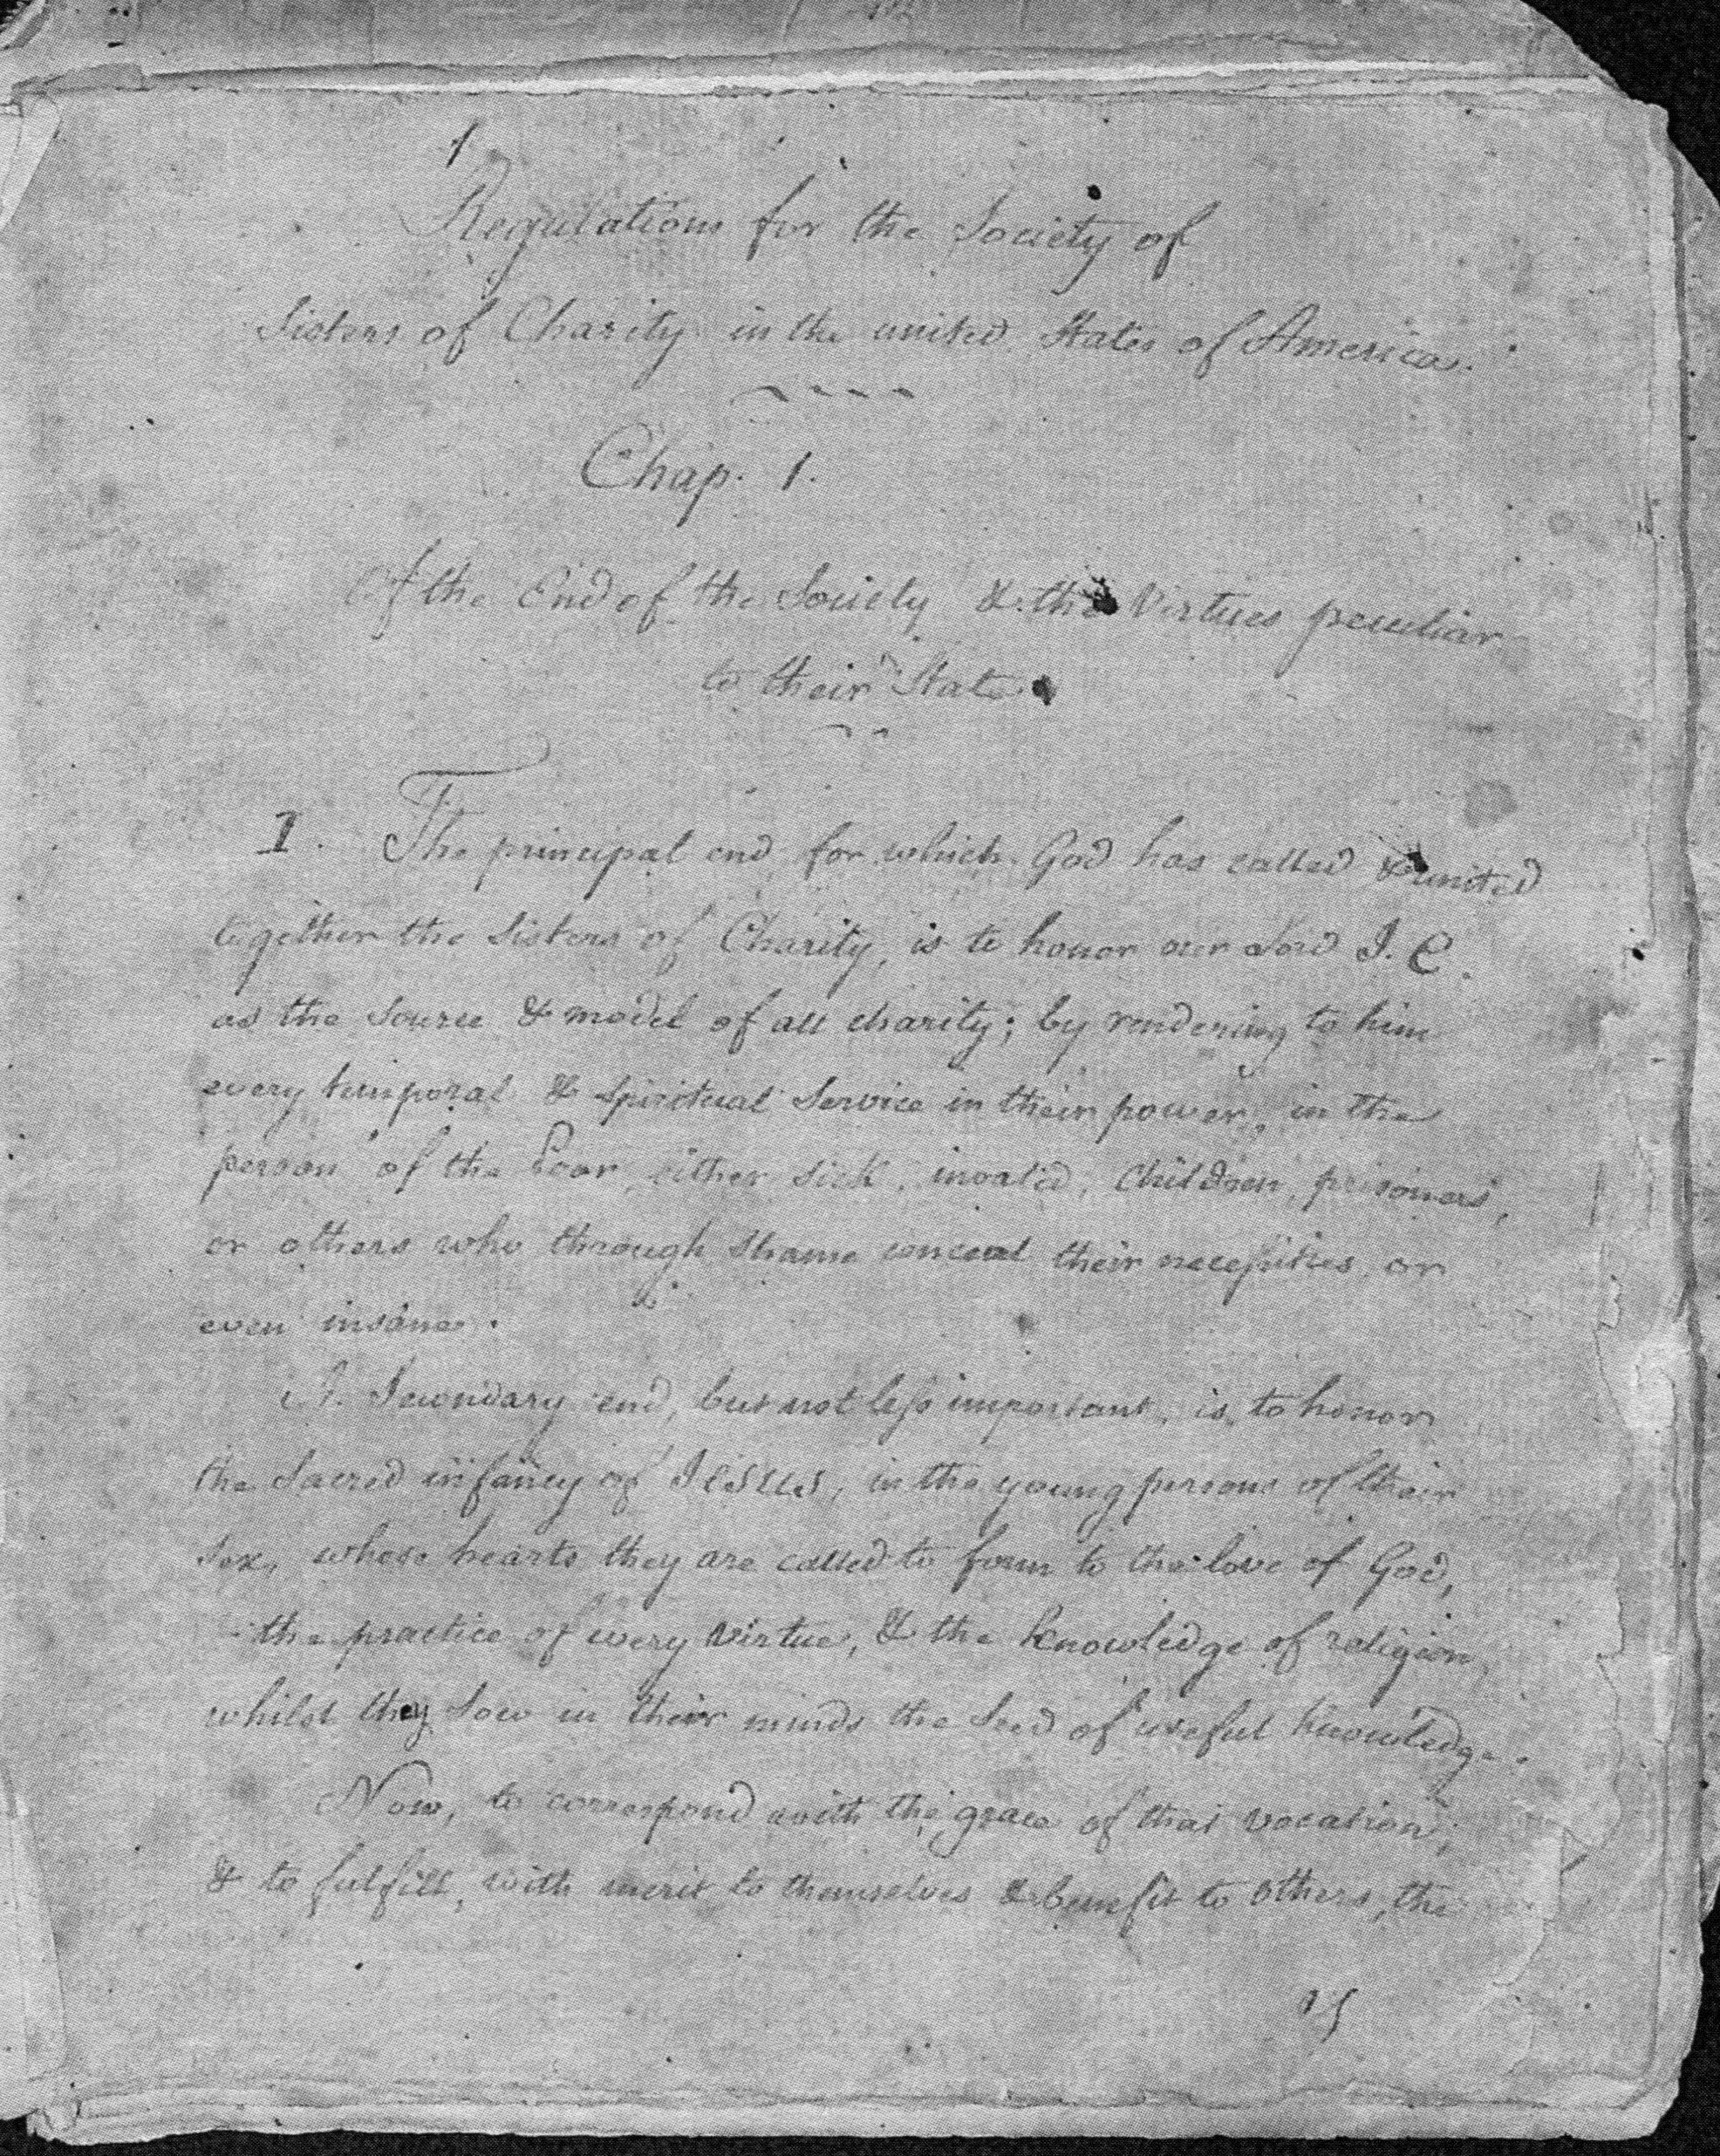 1
Regulations for the Society of
Sisters of Charity in the united States of America.
Chap. 1.
Of the End of the Society & the Virtues peculiar
to their State
I. The principal end for which God has called & united
together the Sisters of Charity, is to honor our Lord J. C.
as the Source & model of all charity; by rendering to him
every temporal & spiritual Service in their power, in the
person of the Poor, either sick, invalid, children, prisoners,
or others who through shame conceal their necessities, or
even insane.
A Secondary end, but not less important, is to honor
the Sacred infancy of Jesus, in the young persons of their
Sex, whose hearts they are called to form to the love of God,
the practice of every virtue, & the knowledge of religion,
whilst they Sow in their minds the Seed of useful knowledge.
Now, to correspond with the grace of that vocation,
& to fulfill, with merit to themselves & benefit to others, the
15